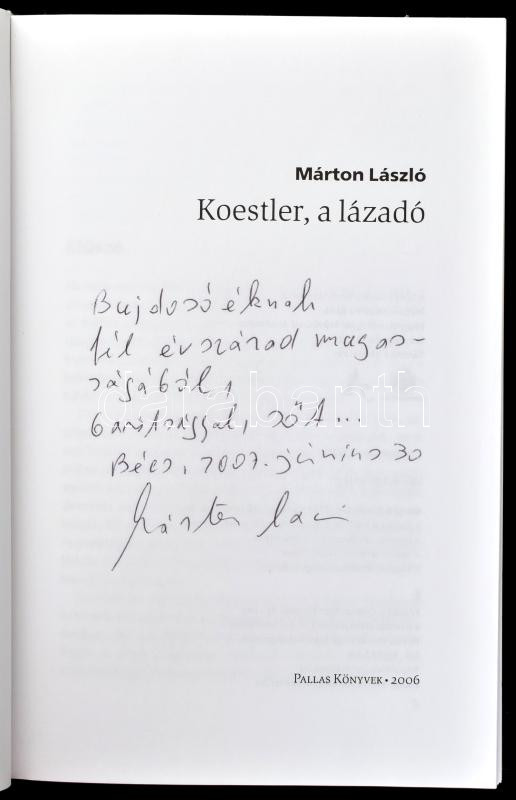 Márton László
Koestler, a lázadó
Bujdosóéknak
fél évszázad magas-
ságából,
barátsággal, sőt...
Bécs, 2007. június 30
Márton Laci
darabanth
PALLAS KÖNYVEK • 2006